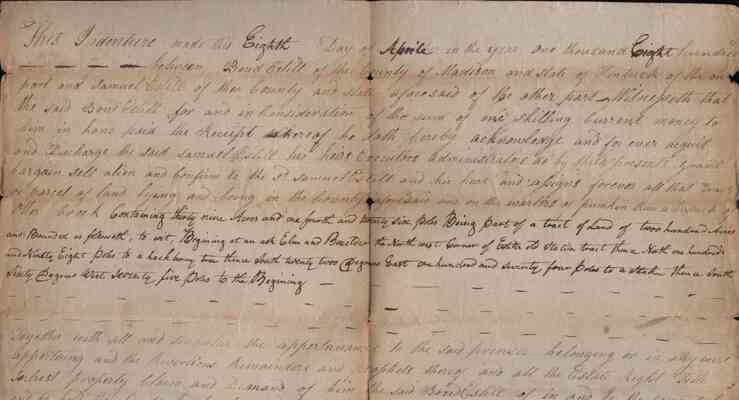 This Indenture made this Eighth Day of Aprile in the year one thousand Eight hundred
between Bond Estill of the County of Madison and state of Kentuck of the one
part and Samuel Estill of the County and state aforesaid of the other part Witnesseth that
the said Bond Estill for and in Consideration of the sum of one shilling Current money to
him in hand paid the Receipt whereof he doth hereby acknowledge and for ever acquit
and Discharge the said Samuel Estill his heirs Executors Administrators as by these presents grant
bargain sell alien and Confirm to the sd. Samuel Estill and his heirs and assigns forever all that Tract
or parcel of land lying and being in the County aforesaid and on the waters of a branch of
Otter Creek Containing thirty nine Acres and one fourth and twenty six poles Being part of a tract of Land of two hundred Acres
and Bounded as followeth, to wit, Begining at an ash Elm and the North west Corner of Estills Station tract thence North one hundred
and Ninety Eight poles to a hackberry tree thence South twenty two Degrees East one hundred and seventy four poles to a stake thence South
Sixty Degrees West Seventy five poles to the Begining
Together with all and singular the appurtenances to the said premises belonging or in any wise
appertaining and the Reversions Remainders and profits thereof and all the Estate Right Title
Interest property Claim and Demand of him the said Bond Estill of in and to the same